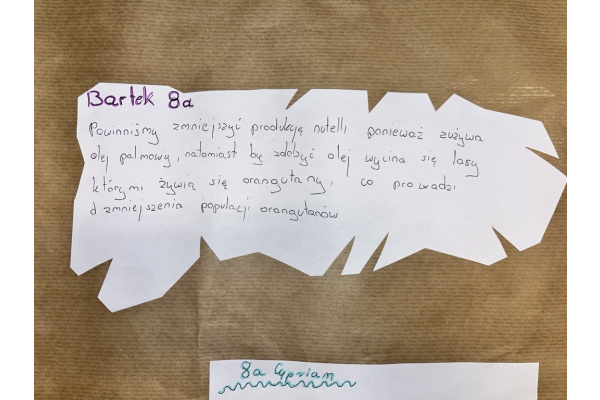 Bartek 8a
Powinniśmy zmniejszyć produkcję nutelli ponieważ zużywa
olej palmowy, natomiast by zdobyć olej wycina się lasy
którymi żywią się orangutany, co prowadzi
d zmniejszenia populacji orangutanów
8a Cyprian